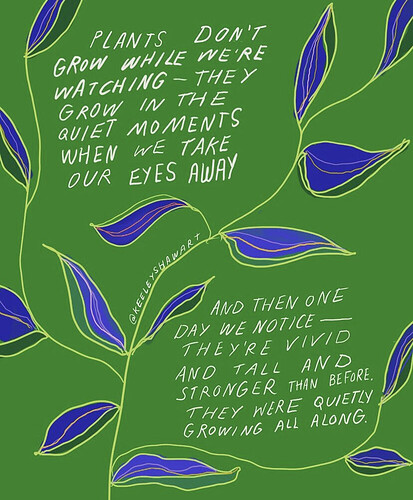 PLANTS DON'T
GROW WHILE WE'RE
WATCHING – THEY
GROW IN THE
QUIET MOMENTS
WHEN WE TAKE
OUR EYES AWAY
@KEELEYSHAWART
AND THEN ONE
DAY WE NOTICE —
THEY'RE VIVID
AND TALL AND
STRONGER THAN BEFORE.
THEY WERE QUIETLY
GROWING ALL ALONG.